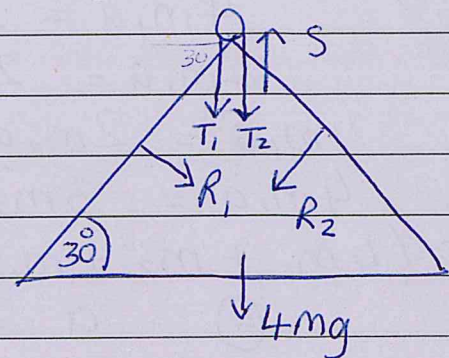 30
S
T₁ T₂
R₁
R₂
30°
4mg